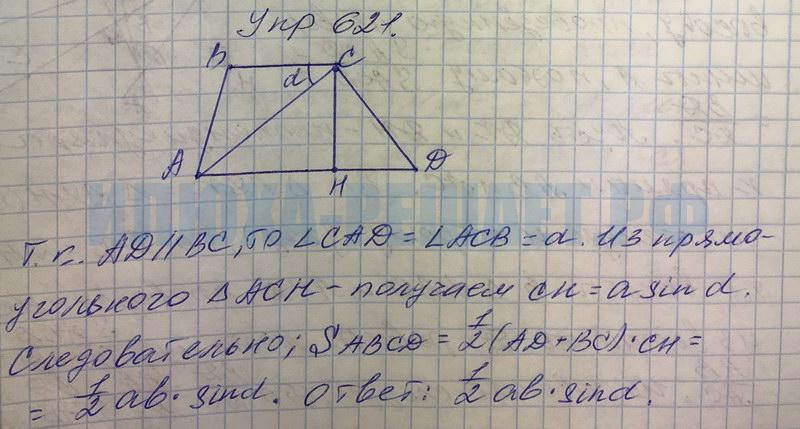 Упр 621.
B C
α
A H D
ИЛЮХА-РЕШАЕТ.РФ
Т.к. AD//BC, то ∠CAD = ∠ACB = α. Из прямо-
угольного △ACH - получаем CH = a sin α.
Следовательно; SABCD = 1/2 (AD + BC) · CH =
= 1/2 ab · sin α. Ответ: 1/2 ab · sin α.